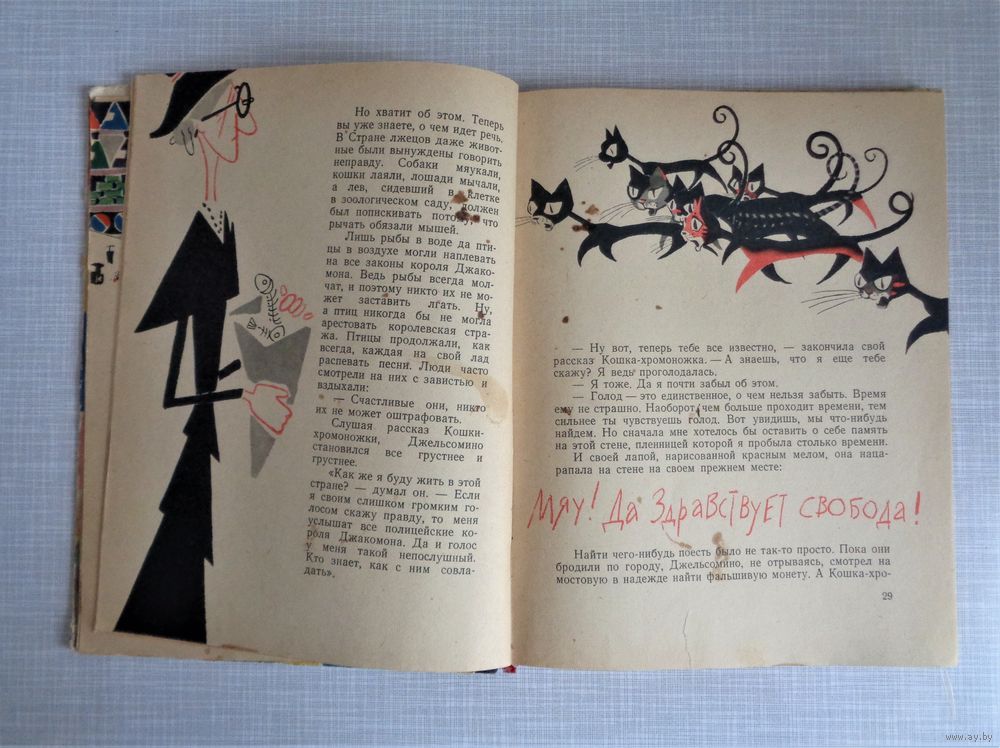 Но хватит об этом. Теперь
вы уже знаете, о чем идет речь.
В Стране лжецов даже живот-
ные были вынуждены говорить
неправду. Собаки мяукали,
кошки лаяли, лошади мычали,
а лев, сидевший в клетке
в зоологическом саду, должен
был попискивать потому, что
рычать обязали мышей.
Лишь рыбы в воде да пти-
цы в воздухе могли наплевать
на все законы короля Джако-
мона. Ведь рыбы всегда мол-
чат, и поэтому никто их не мо-
жет заставить лгать. Ну,
а птиц никогда бы не могла
арестовать королевская стра-
жа. Птицы продолжали, как
всегда, каждая на свой лад
распевать песни. Люди часто
смотрели на них с завистью и
вздыхали:
— Счастливые они, никто
их не может оштрафовать.
Слушая рассказ Кошки-
хромоножки, Джельсомино
становился все грустнее и
грустнее.
«Как же я буду жить в этой
стране? — думал он. — Если
я своим слишком громким го-
лосом скажу правду, то меня
услышат все полицейские ко-
роля Джакомона. Да и голос
у меня такой непослушный.
Кто знает, как с ним совла-
дать».
— Ну вот, теперь тебе все известно, — закончила свой
рассказ Кошка-хромоножка. — А знаешь, что я еще тебе
скажу? Я ведь проголодалась.
— Я тоже. Да я почти забыл об этом.
— Голод — это единственное, о чем нельзя забыть. Время
ему не страшно. Наоборот, чем больше проходит времени, тем
сильнее ты чувствуешь голод. Вот увидишь, мы что-нибудь
найдем. Но сначала мне хотелось бы оставить о себе память
на этой стене, пленницей которой я пробыла столько времени.
И своей лапой, нарисованной красным мелом, она наца-
рапала на стене на своем прежнем месте:
Мяу! Да здравствует свобода!
Найти чего-нибудь поесть было не так-то просто. Пока они
бродили по городу, Джельсомино, не отрываясь, смотрел на
мостовую в надежде найти фальшивую монету. А Кошка-хро-
29
www.ay.by